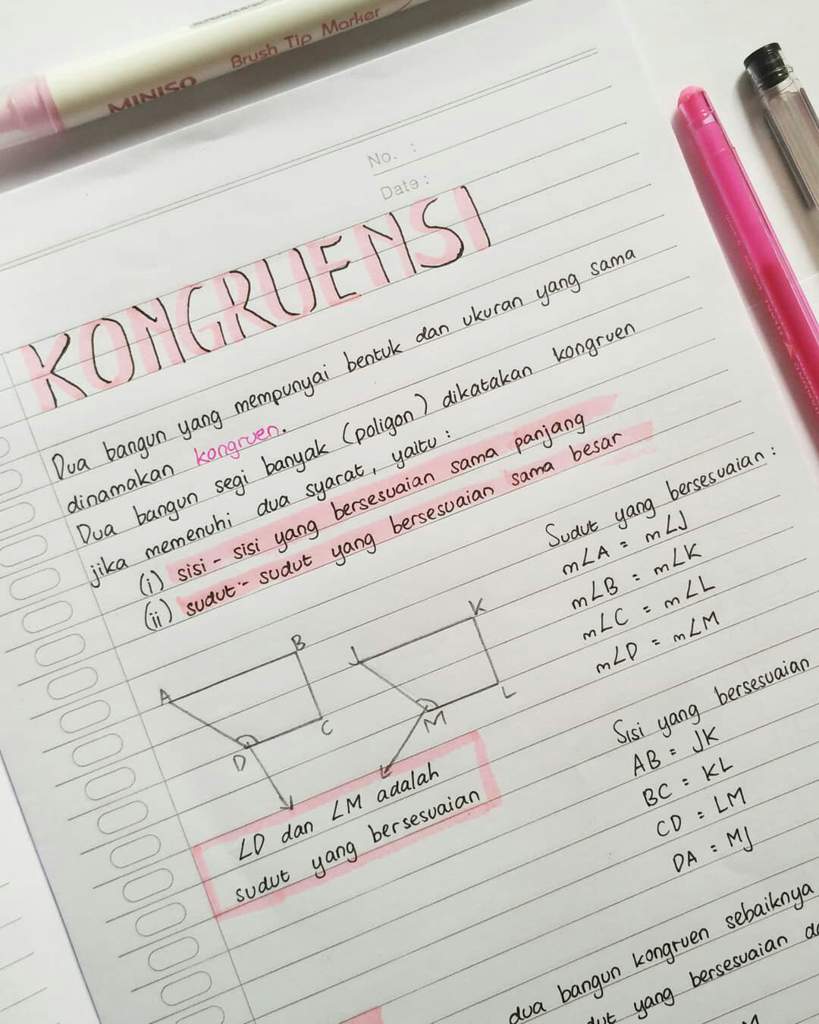 MINISO Brush Tip Marker
No. :
Date :
KONGRUENSI
Dua bangun yang mempunyai bentuk dan ukuran yang sama
dinamakan kongruen.
Dua bangun segi banyak (poligon) dikatakan kongruen
jika memenuhi dua syarat, yaitu :
(i) sisi - sisi yang bersesuaian sama panjang
(ii) sudut - sudut yang bersesuaian sama besar
A
B
C
D
J
K
L
M
∠D dan ∠M adalah
sudut yang bersesuaian
Sudut yang bersesuaian :
m∠A = m∠J
m∠B = m∠K
m∠C = m∠L
m∠D = m∠M
Sisi yang bersesuaian
AB = JK
BC = KL
CD = LM
DA = MJ
dua bangun kongruen sebaiknya
yang bersesuaian